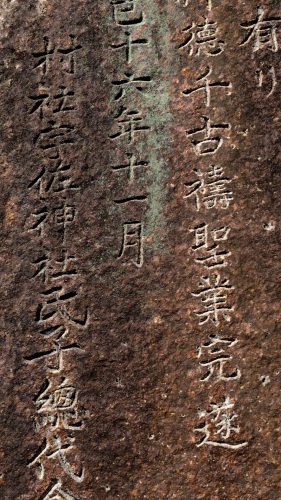 有リ
德千古禱聖業完遂
十六年十一月
村社宇佐神社民子總代